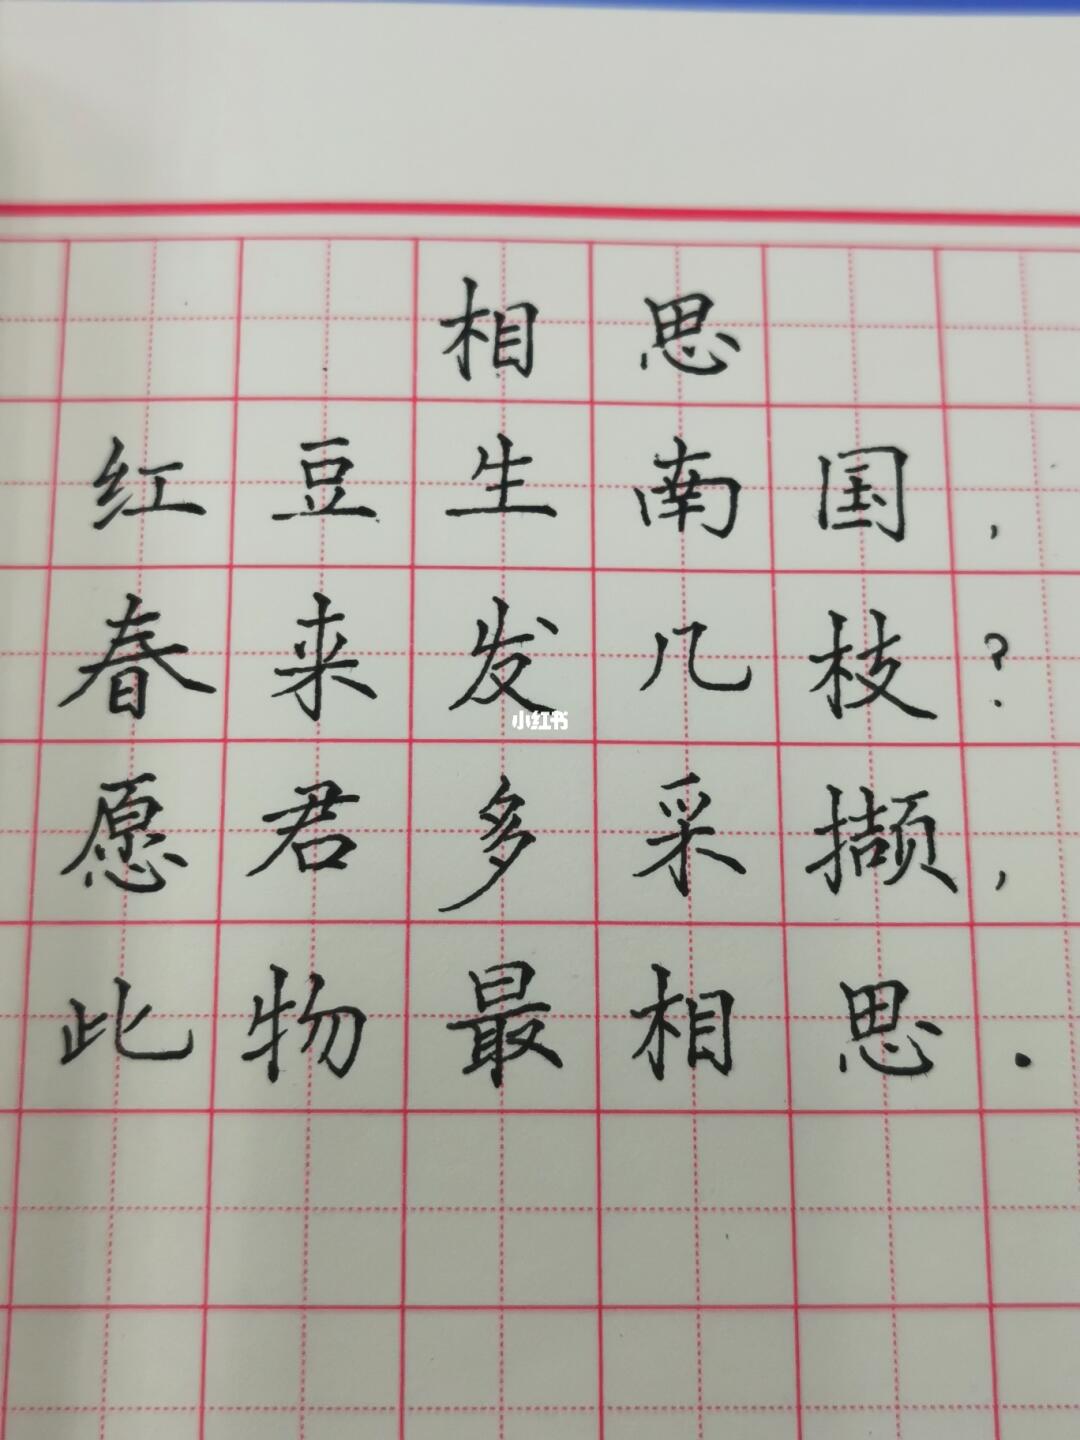 相思
红豆生南国，
春来发几枝？
小红书
愿君多采撷，
此物最相思.